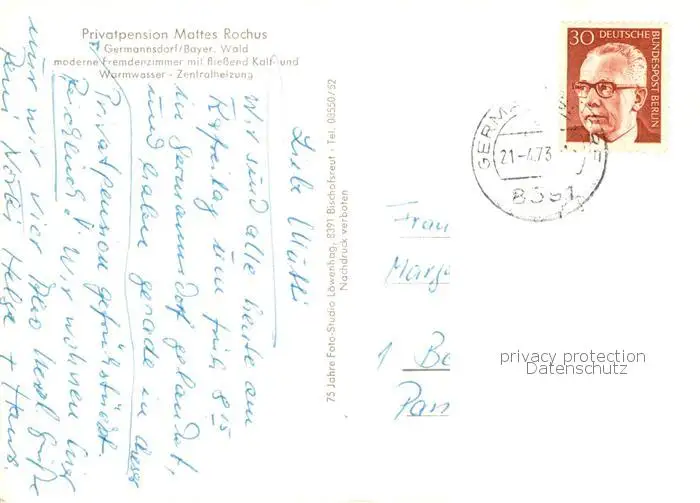 Privatpension Mattes Rochus
Germannsdorf/Bayer. Wald
moderne Fremdenzimmer mit fließend Kalt- und
Warmwasser - Zentralheizung
Liebe Mutti
Wir sind alle heute am
Karfreitag um früh 8 15
in Germannsdorf gelandet,
und haben gerade in dieser
Privatpension gefrühstückt.
Reichlich! Wir wohnen hier
nur wir vier. Also herzl. Grüße
Deine Kinder Helga + Hans
75 Jahre Foto-Studio Löwenhag, 8391 Bischofsreut - Tel. 08550/52
Nachdruck verboten
30 DEUTSCHE BUNDESPOST BERLIN
GERMA
21-4.73
8391
Frau
Marg
1 Be
Pan
privacy protection
Datenschutz